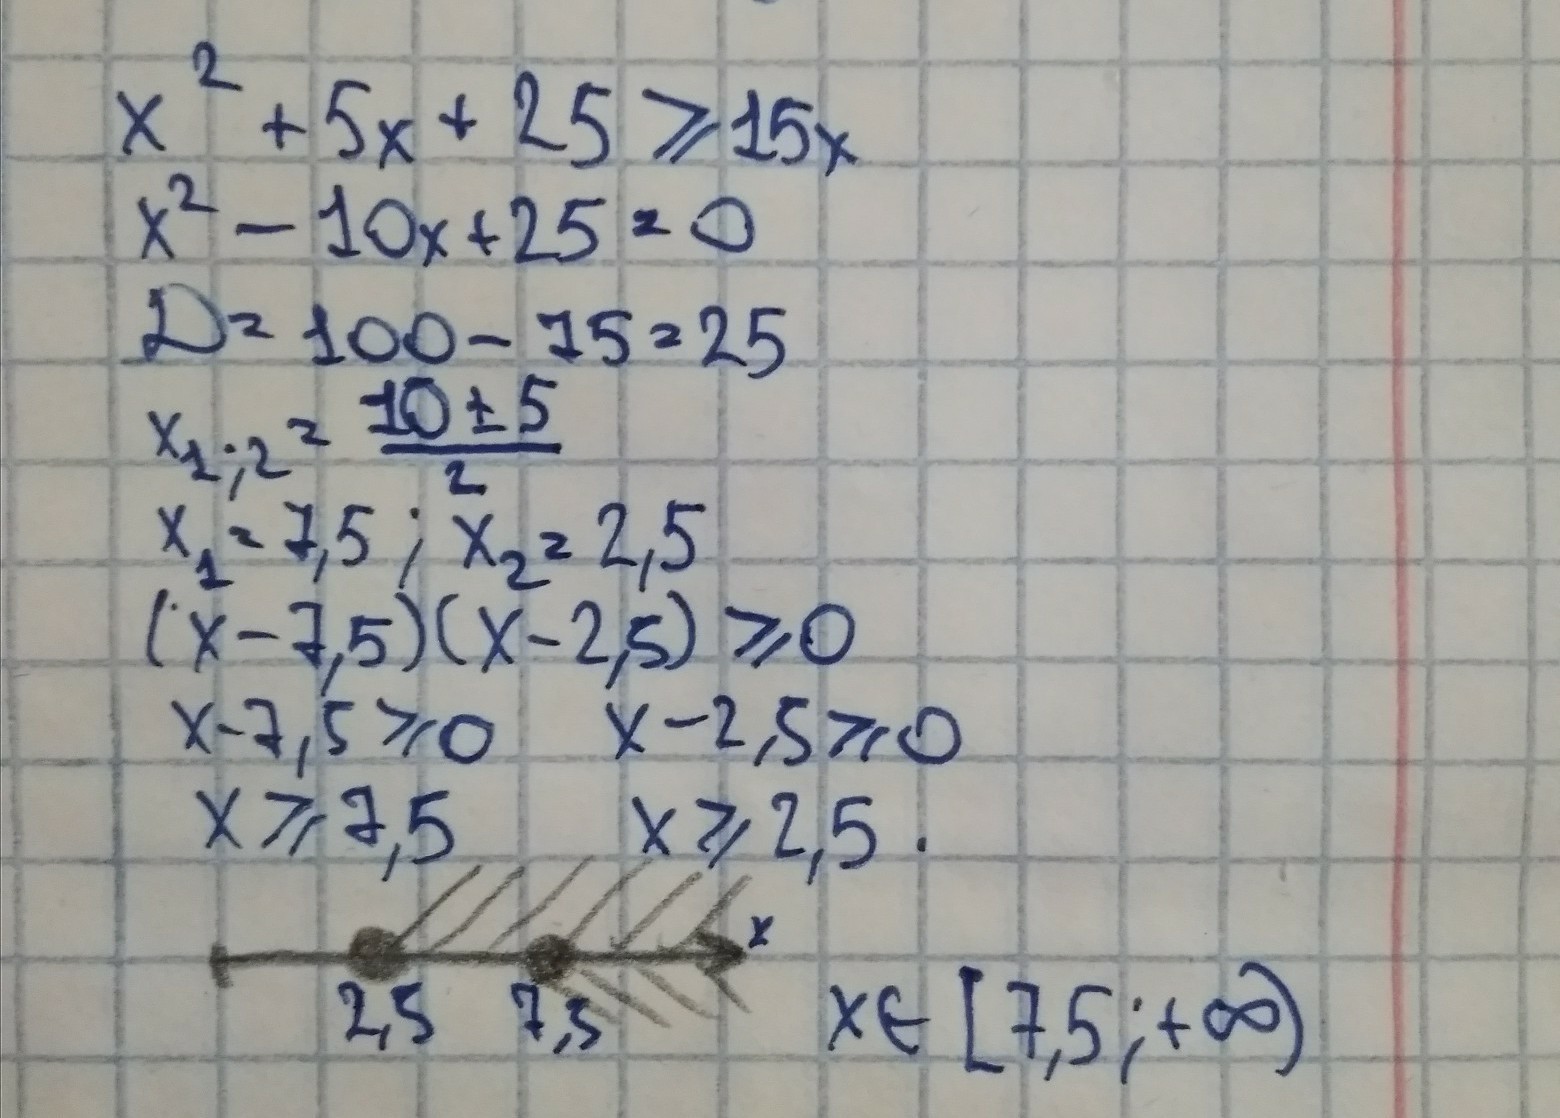 x² + 5x + 25 ⩾ 15x
x² - 10x + 25 = 0
D = 100 - 75 = 25
x₁;₂ = (10 ± 5)/2
x₁ = 7,5; x₂ = 2,5
(x - 7,5)(x - 2,5) ⩾ 0
x - 7,5 ⩾ 0 x - 2,5 ⩾ 0
x ⩾ 7,5 x ⩾ 2,5.
x
2,5 7,5
x ∈ [7,5; +∞)